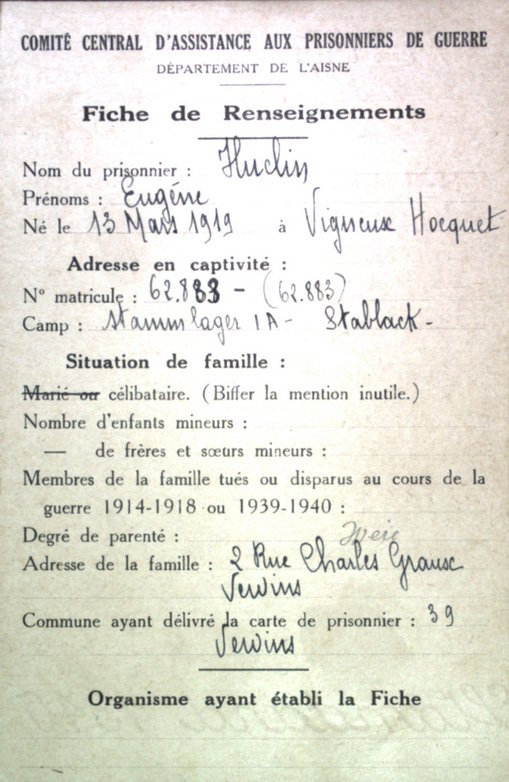 COMITÉ CENTRAL D'ASSISTANCE AUX PRISONNIERS DE GUERRE
DÉPARTEMENT DE L'AISNE
Fiche de Renseignements
Nom du prisonnier : Huclin
Prénoms : Eugéne
Né le 13 Mars 1919 à Vigneux Hocquet
Adresse en captivité :
N° matricule : 62.883 - (62.883)
Camp : Stammlager IA - Stablack -
Situation de famille :
Marié ou célibataire. (Biffer la mention inutile.)
Nombre d'enfants mineurs :
— de frères et sœurs mineurs :
Membres de la famille tués ou disparus au cours de la
guerre 1914-1918 ou 1939-1940 :
Degré de parenté :
Adresse de la famille : 2 Rue Charles
Vervins
Commune ayant délivré la carte de prisonnier : 39
Vervins
Organisme ayant établi la Fiche